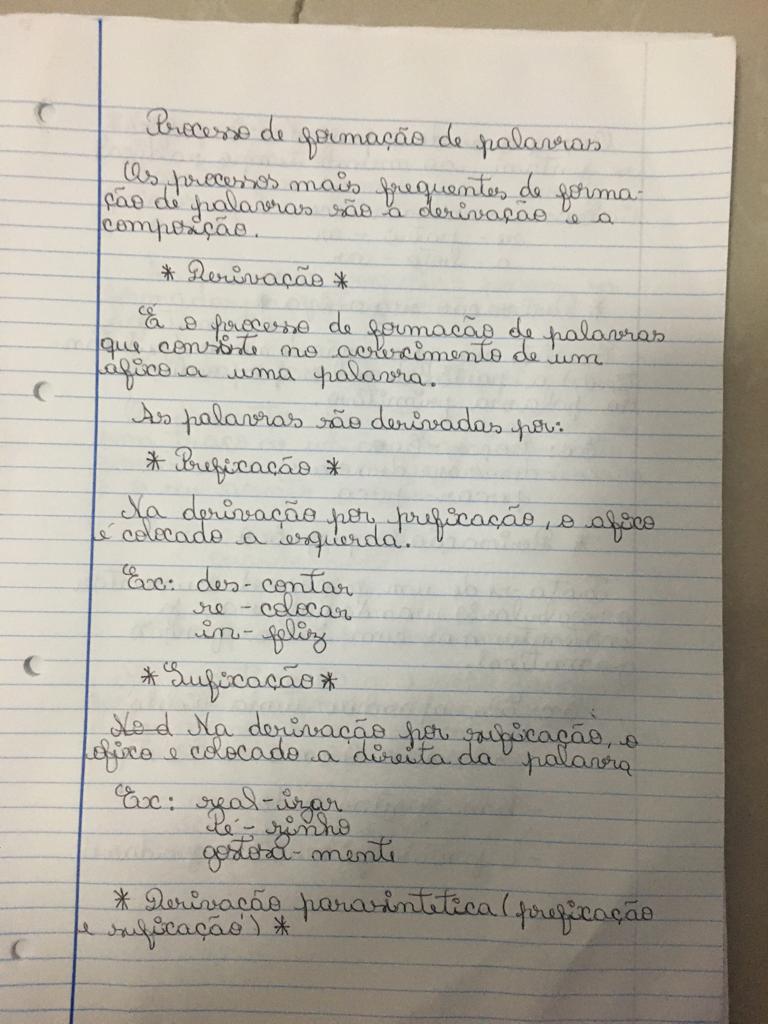 Processo de formação de palavras
Os processos mais frequentes de forma-
ção de palavras são a derivação e a
composição.
* Derivação *
É o processo de formação de palavras
que consiste no acrescimento de um
afixo a uma palavra.
As palavras são derivadas por:
* Prefixação *
Na derivação por prefixação, o afixo
é colocado a esquerda.
Ex: des-contar
re-colocar
in-feliz
* Sufixação *
No d Na derivação por sufixação, o
afixo e colocado a direita da palavra
Ex: real-izar
Pé-zinho
gostosa-mente
* Derivação parasintetica (prefixação
e sufixação) *